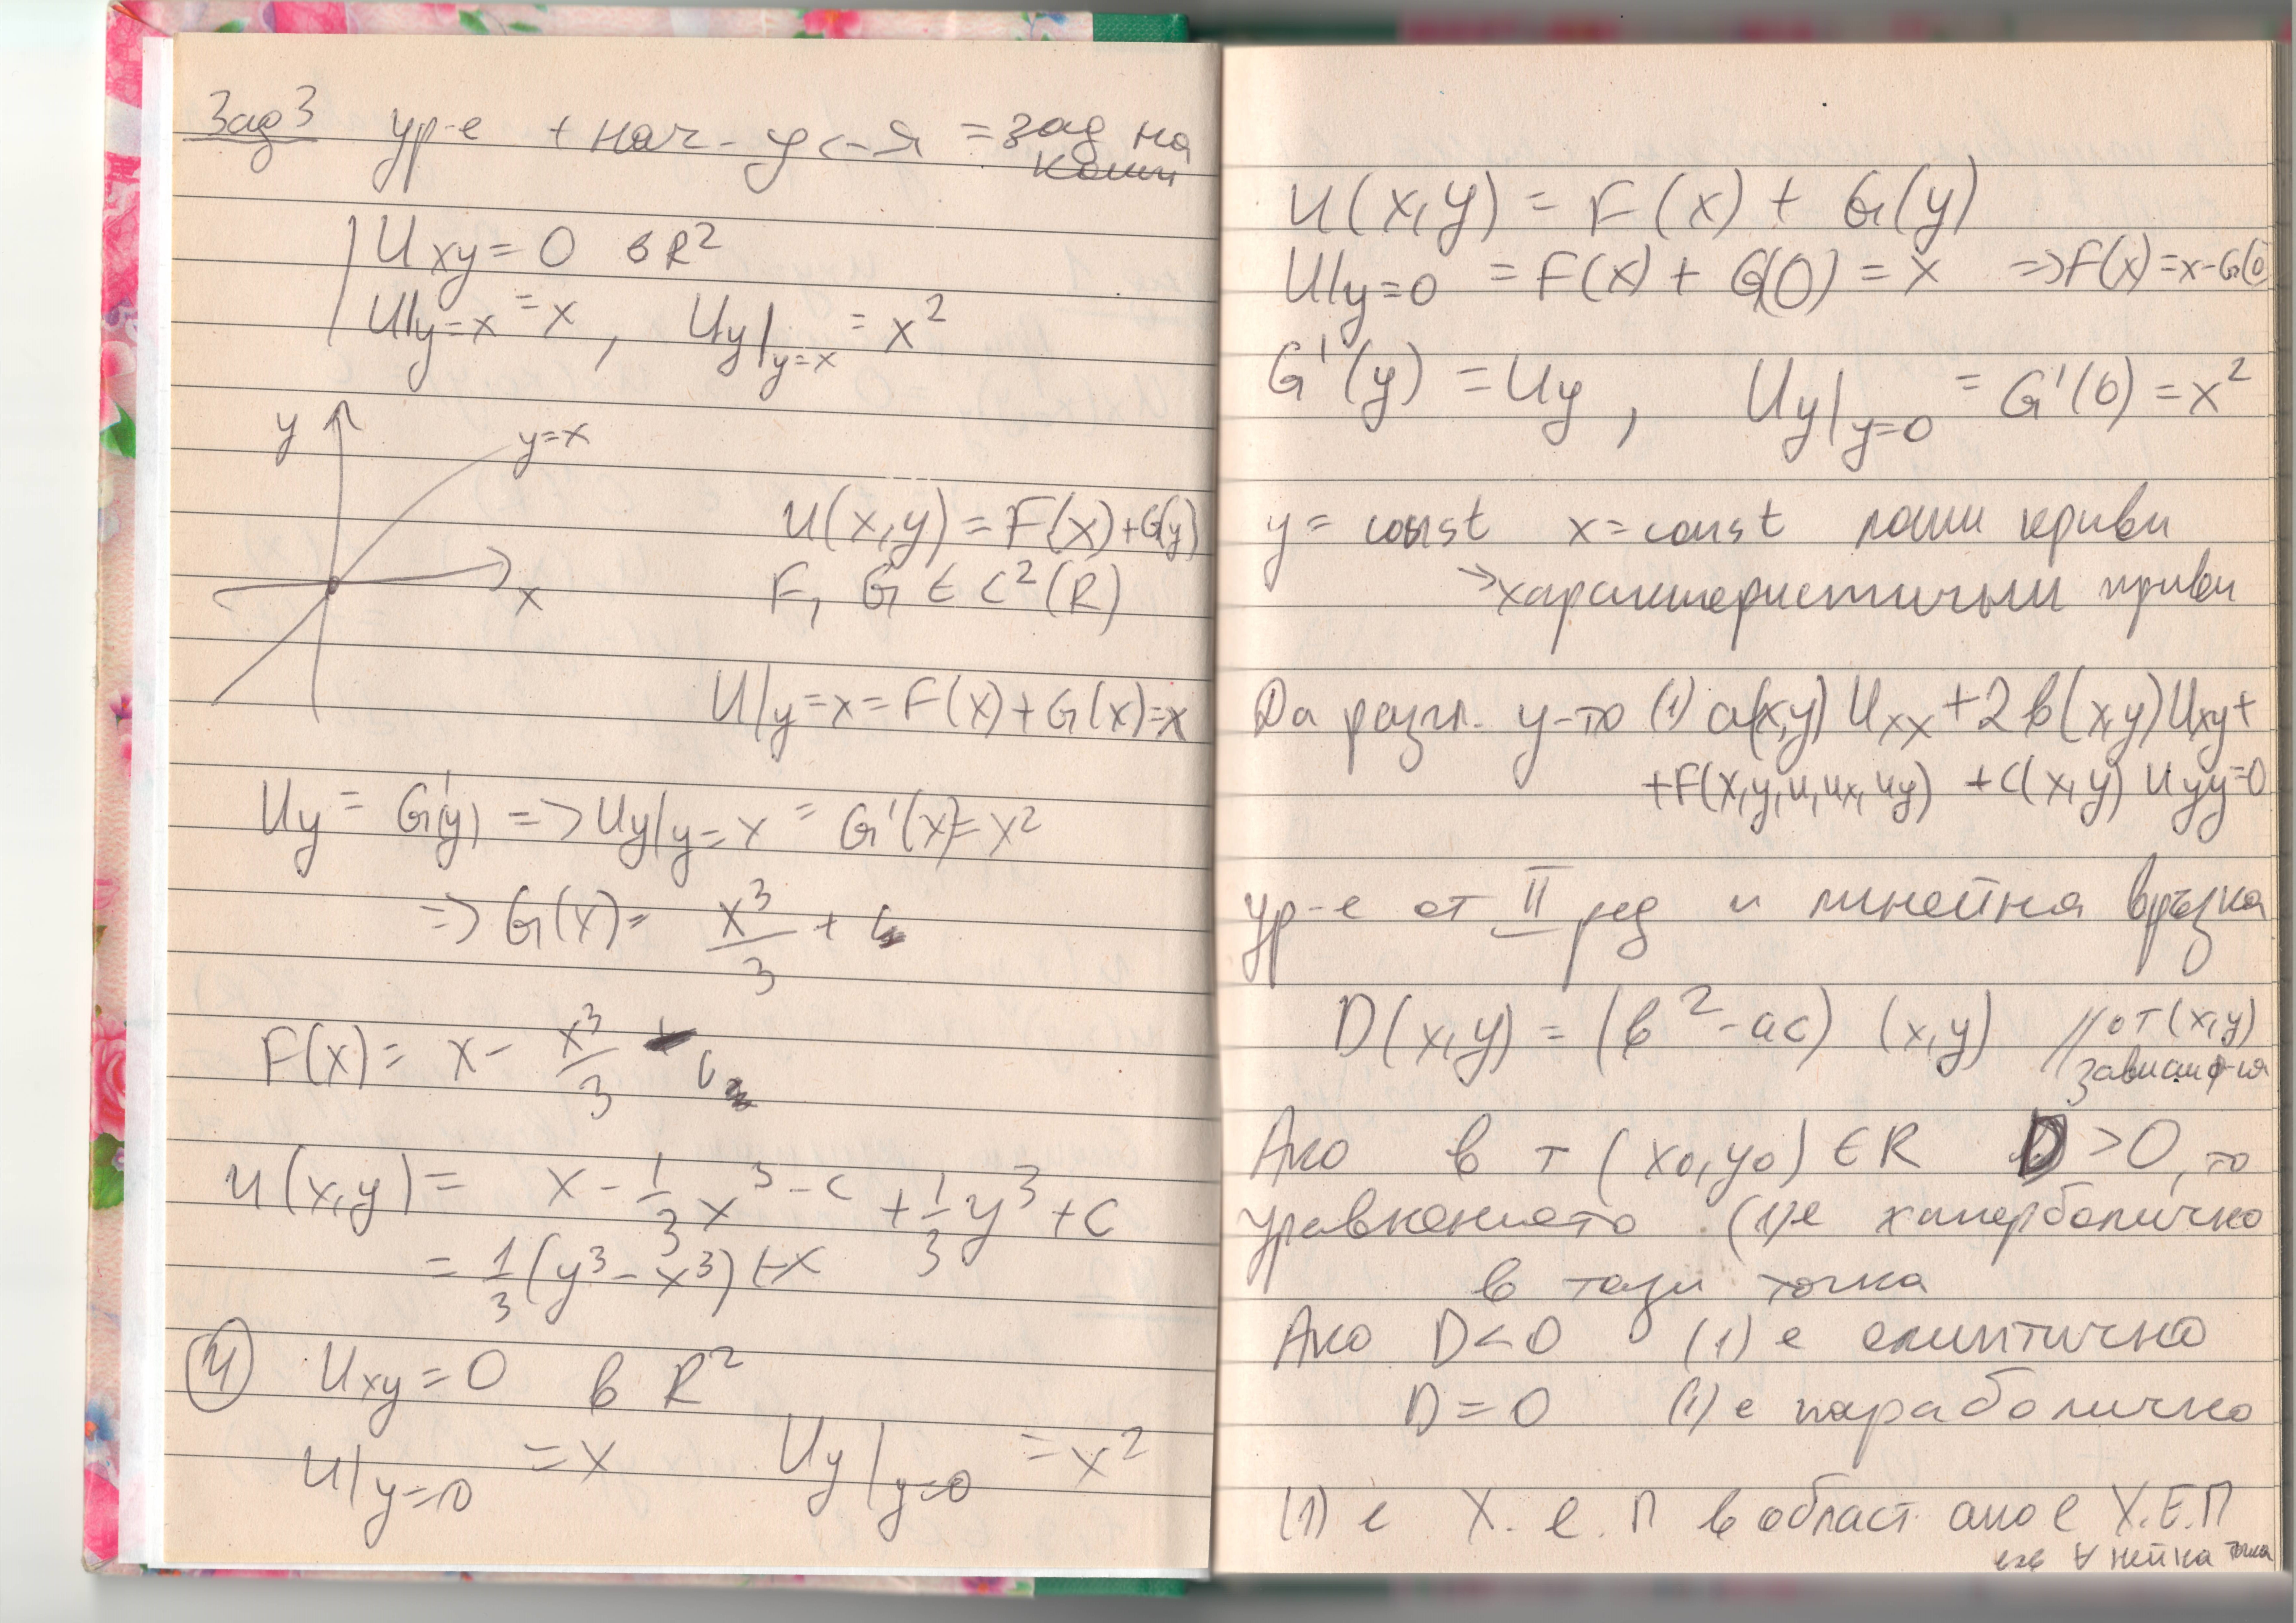 Зад 3 ур-е + нач-ус-я = зад на
Коши
Uxy = 0 в R²
U|y=x = x, Uy|y=x = x²
y
y=x
x
U(x,y) = F(x)+G(y)
F, G ∈ C²(R)
U|y=x = F(x)+G(x)=x
Uy = G'(y) => Uy|y=x = G'(x)=x²
=> G(x)= x³/3 + c
F(x)= x - x³/3 - c
u(x,y)= x - 1/3 x³ - c + 1/3 y³ + c
= 1/3 (y³ - x³) + x
④ Uxy = 0 в R²
U|y=0 = x Uy|y=0 = x²
U(x,y) = F(x) + G(y)
U|y=0 = F(x) + G(0) = x => F(x)=x-G(0)
G'(y) = Uy, Uy|y=0 = G'(0) = x²
y = const x = const лоши криви
→ характеристични криви
Да разгл. у-то (1) a(x,y) Uxx + 2 в(x,y) Uxy +
+F(x,y,u,ux,uy) + c(x,y) Uyy=0
ур-е от II ред и линейна връзка
D(x,y) = (в² - ac) (x,y) // от (x,y)
зависим ф-ия
Ако в т (x0,y0) ∈ R D > 0, то
уравнението (1) е хиперболично
в тази точка
Ако D < 0 (1) е елиптично
D = 0 (1) е параболично
(1) е Х. е. П в област ако е Х.Е.П
във ∀ нейна точка